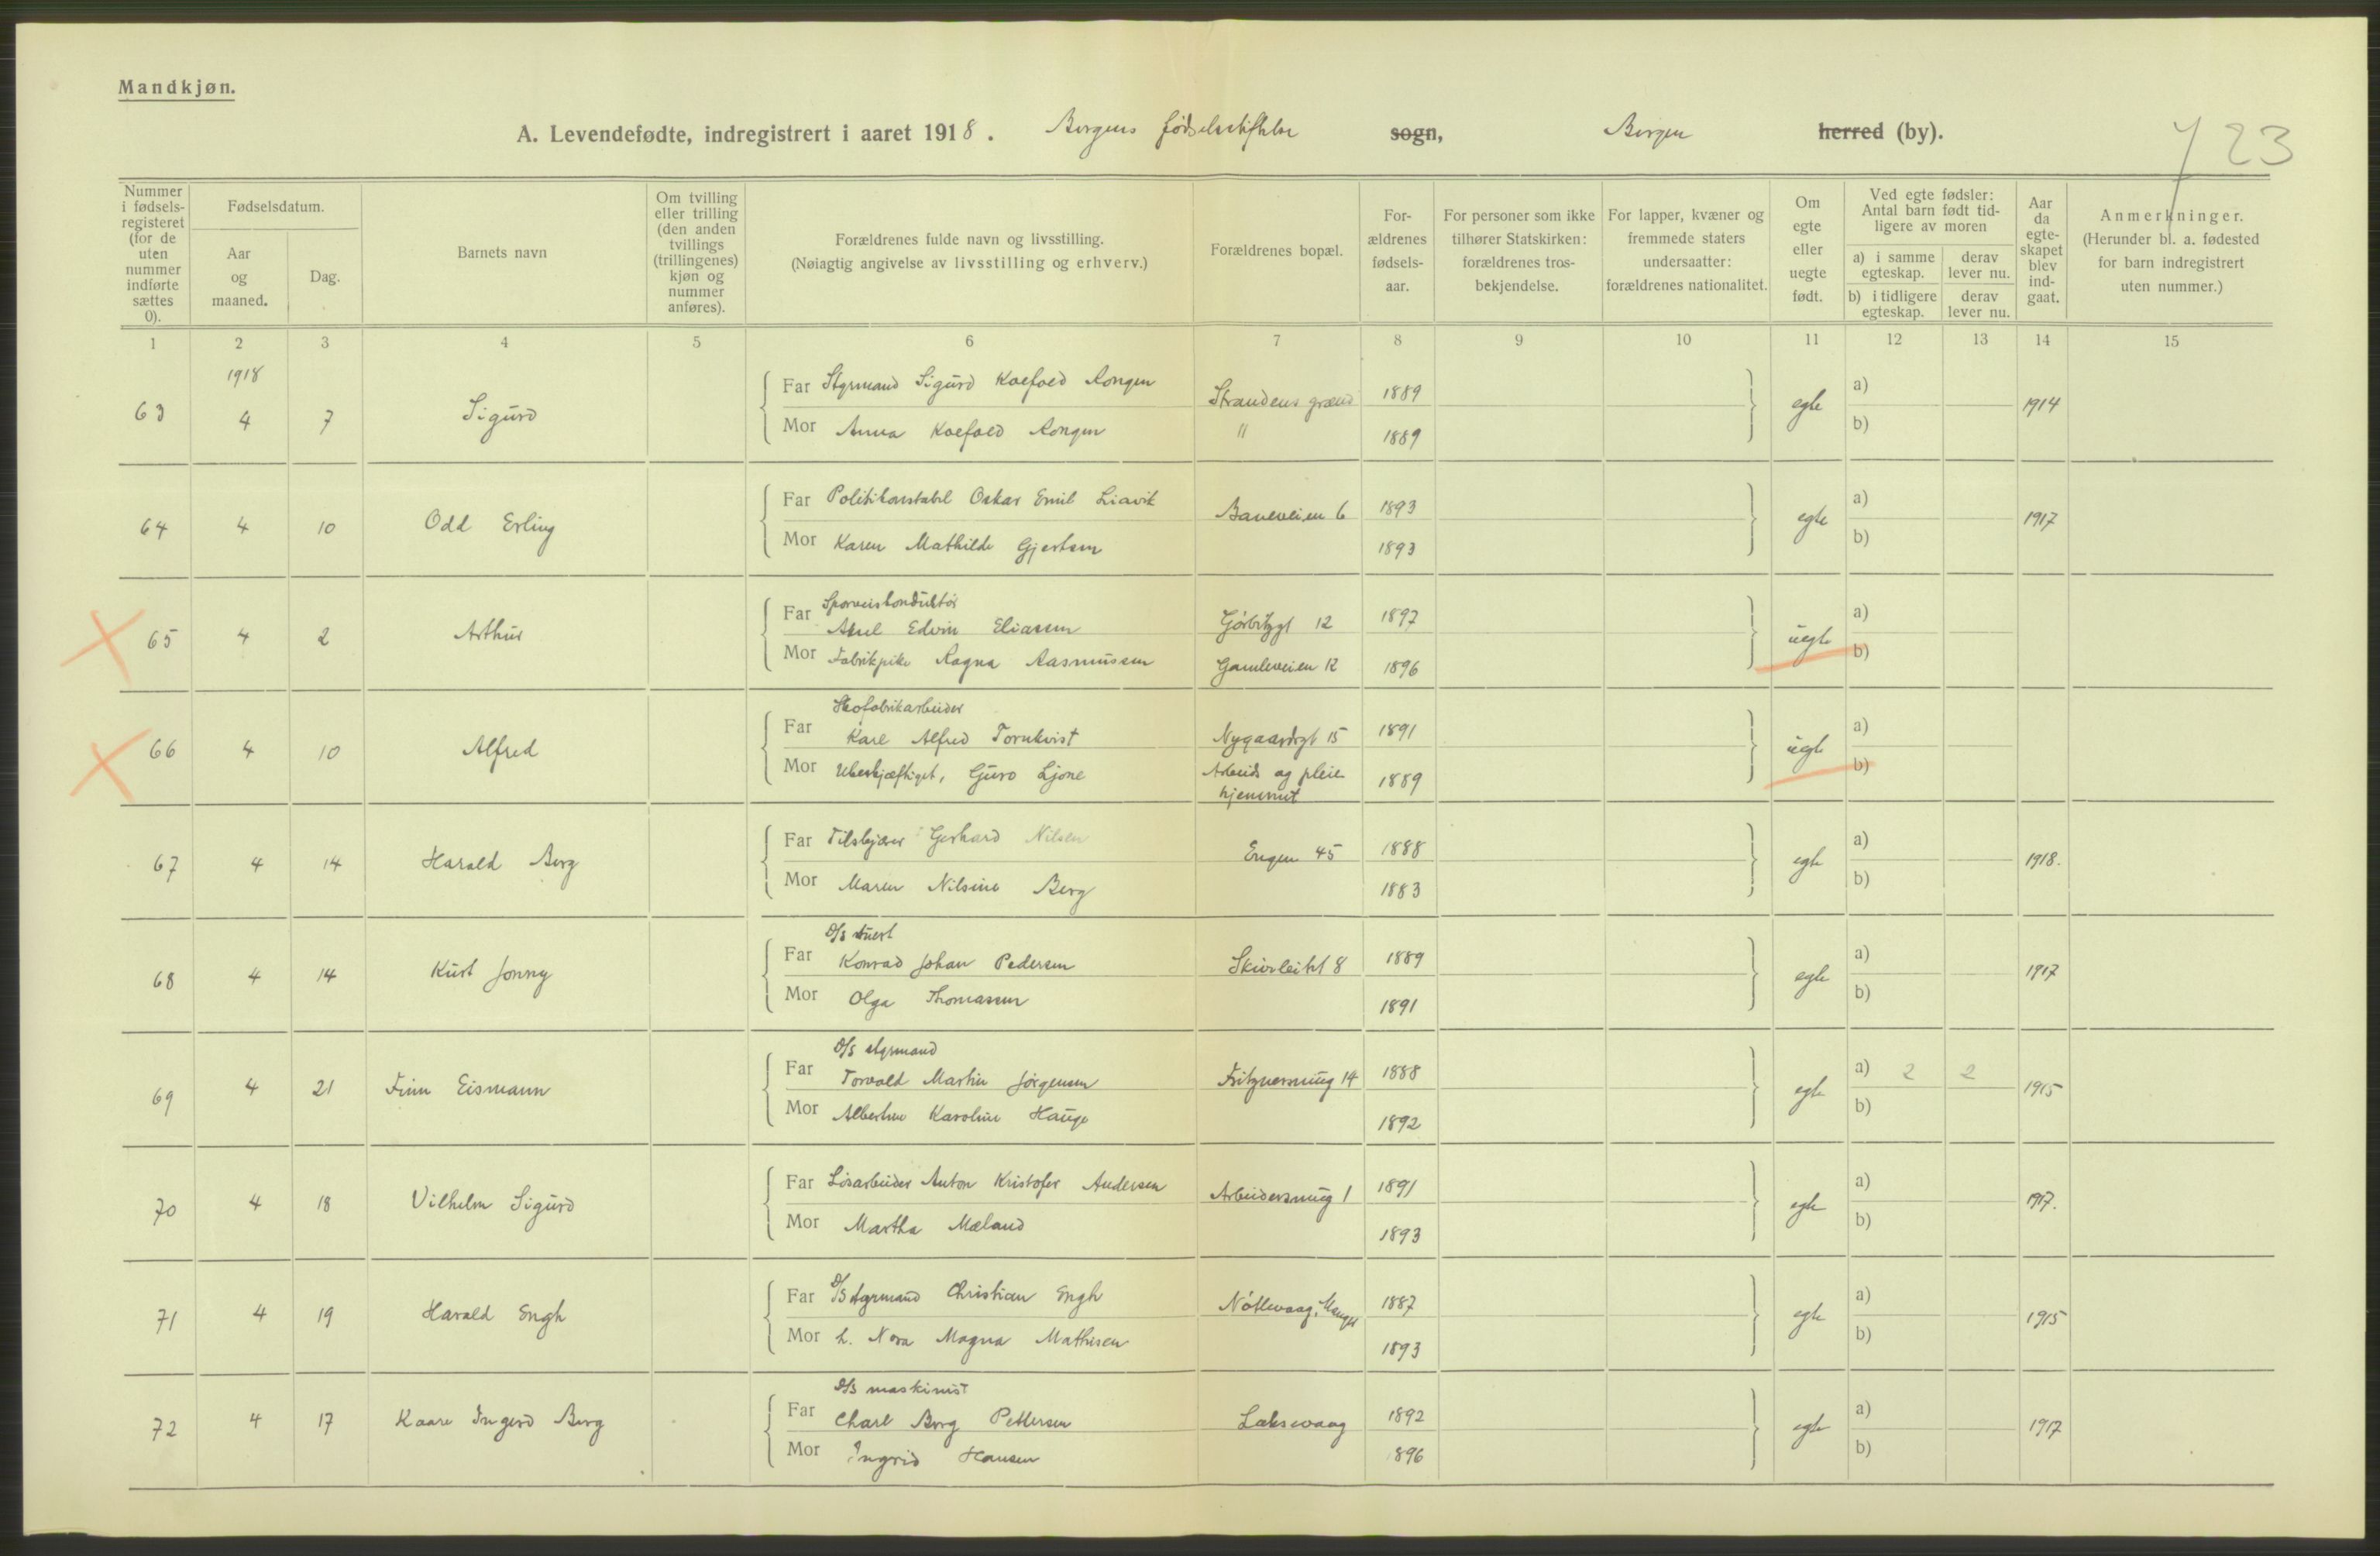 Mandkjøn.
A. Levendefødte, indregistrert i aaret 1918. Bergens fødselsstiftelse sogn, Bergen herred (by).
723
Nummer i fødsels-registeret (for de uten nummer indførte sættes 0).
Fødselsdatum.
Aar og maaned.
Dag.
Barnets navn
Om tvilling eller trilling (den anden tvillings (trillingenes) kjøn og nummer anføres).
Forældrenes fulde navn og livsstilling.
(Nøiagtig angivelse av livsstilling og erhverv.)
Forældrenes bopæl.
For-ældrenes fødsels-aar.
For personer som ikke tilhører Statskirken: forældrenes tros-bekjendelse.
For lapper, kvæner og fremmede staters undersaatter: forældrenes nationalitet.
Om egte eller uegte født.
Ved egte fødsler: Antal barn født tid-ligere av moren
a) i samme egteskap.
derav lever nu.
b) i tidligere egteskap.
derav lever nu.
Aar da egte-skapet blev ind-gaat.
Anmerkninger.
(Herunder bl. a. fødested for barn indregistrert uten nummer.)
1 2 3 4 5 6 7 8 9 10 11 12 13 14 15
1918
63 4 7 Sigurd Far Styrmand Sigurd Koefoed Rongen Strandens grænd 1889 egte a) 1914
Mor Anna Koefoed Rongen " 1889 b)
64 4 10 Odd Erling Far Politikonstabel Oskar Emil Liavik Baneveien 6 1893 egte a) 1917
Mor Karen Mathilde Gjertsen 1893 b)
Sporveiskonduktör
65 4 2 Arthur Far Axel Edvin Eliassen 12 1897 uegte a)
Mor Fabrikpike Ragna Rasmussen Gamleveien 12 1896 b)
Skofabrikarbeider
66 4 10 Alfred Far Karl Alfred Tornkvist Nygaardsgt 15 1891 uegte a)
Mor Ubeskjæftiget, Guro Ljone Arbeids og pleie 1889 b)
hjemmet
67 4 14 Harald Berg Far Tilskjærer Gerhard Nilsen Engen 45 1888 egte a) 1918.
Mor Maren Nilsine Berg 1883 b)
D/S stuert
68 4 14 Kurt Jonny Far Konrad Johan Pedersen Skivebakken 8 1889 egte a) 1917
Mor Olga Thomassen 1891 b)
D/S styrmand
69 4 21 Finn Eismann Far Torvald Martin Jörgensen Fritznersmug 14 1888 egte a) 2 2 1915
Mor Albertine Karoline Hauge 1892 b)
70 4 18 Vilhelm Sigurd Far Lösarbeider Anton Kristofer Andersen Arbeidersmug 1 1891 egte a) 1917.
Mor Martha Mæland 1893 b)
71 4 19 Harald Engh Far D/S styrmand Christian Engh Nötlevaag, Manger 1887 egte a) 1915
Mor h. Nora Magna Mathisen 1893 b)
D/S maskinist
72 4 17 Kaare Ingerd Berg Far Charl Berg Pettersen Laksevaag 1892 egte a) 1917
Mor Ingrid Hansen 1896 b)